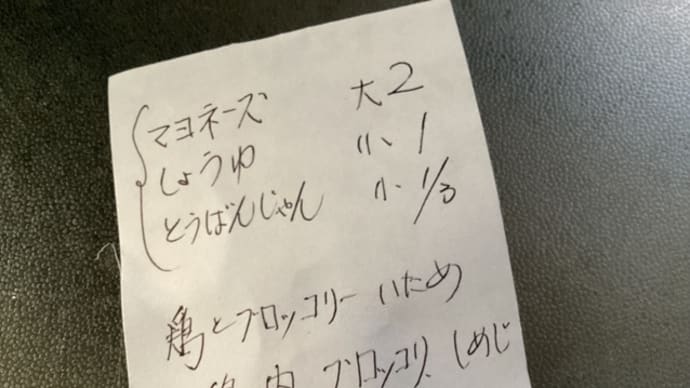 マヨネーズ 大2
しょうゆ 小1
とうばんじゃん 小1/3
鶏とブロッコリーいため
鶏肉 ブロッコリ、しめじ